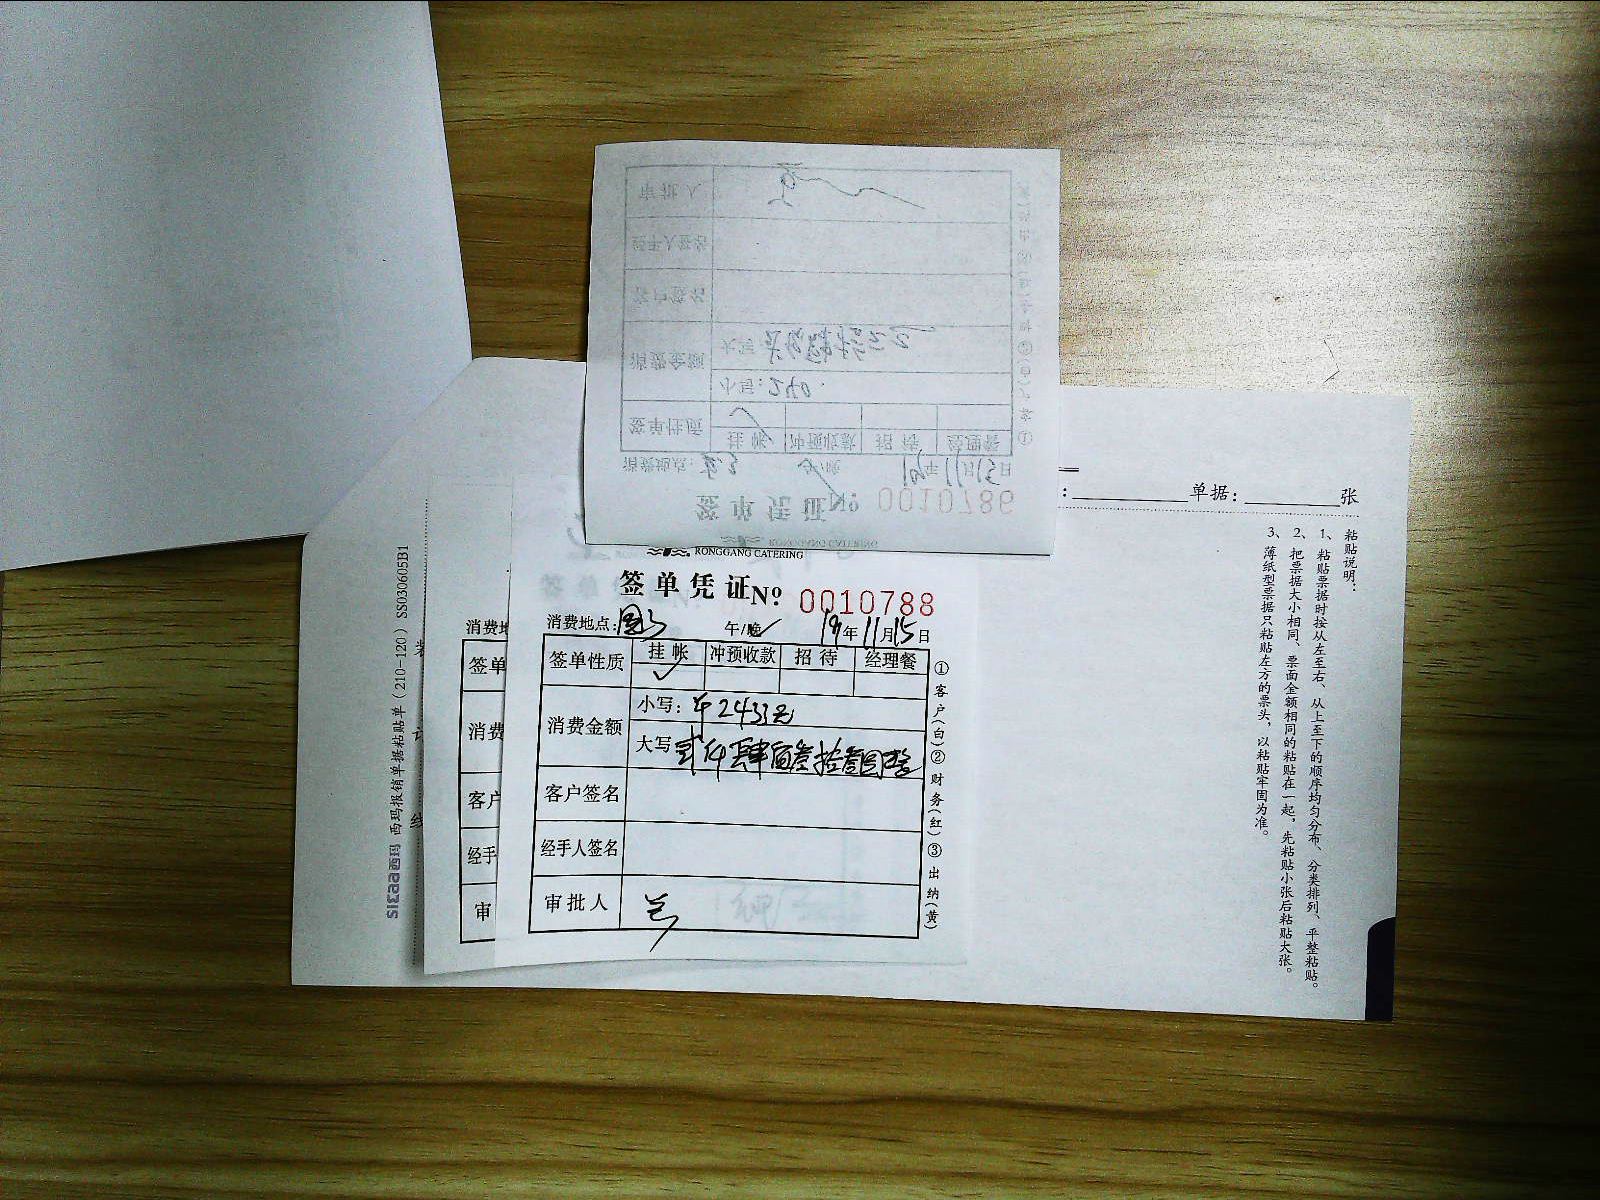 RONGGANG CATERING
签单凭证 No 0010788
消费地点: 午/晚 19年11月15日
签单性质 挂帐 冲预收款 招待 经理餐
消费金额 小写: ¥2433元
大写 贰仟肆佰叁拾叁圆整
客户签名
经手人签名
审批人
①客户(白)②财务(红)③出纳(黄)
消费地
签单
消费
客户
经手
审
审批人
经手人签名
客户签名
消费金额 大写
小写: 240
签单性质 挂帐 冲预收款 招待 经理餐
消费地点: 午/晚 19年11月15日
签单凭证 No 0010786
RONGGANG CATERING
: 单据: 张
粘贴说明:
1、粘贴票据时按从左至右、从上至下的顺序均匀分布、分类排列、平整粘贴。
2、把票据大小相同、票面金额相同的粘贴在一起,先粘贴小张后粘贴大张。
3、薄纸型票据只粘贴左方的票头,以粘贴牢固为准。
西玛 西玛报销单据粘贴单(210-120) SS030605B1
装订线